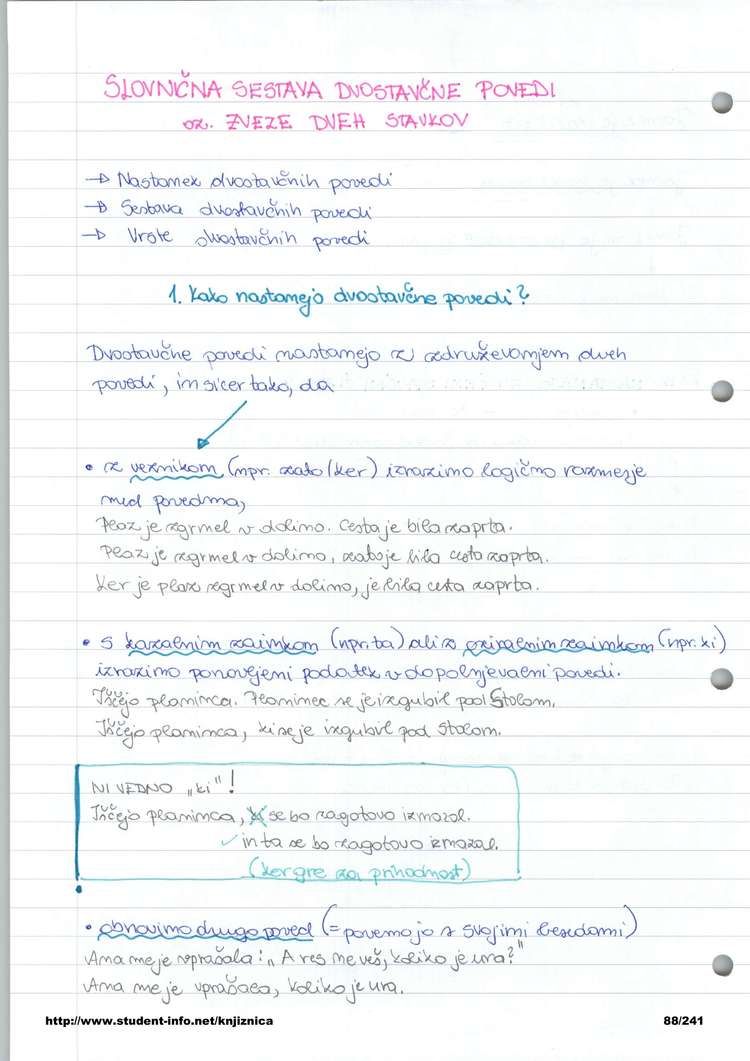 SLOVNIČNA SESTAVA DVOSTAVČNE POVEDI
oz. ZVEZE DVEH STAVKOV
→ Nastanek dvostavčnih povedi
→ Sestava dvostavčnih povedi
→ Vrste dvostavčnih povedi
1. Kako nastanejo dvostavčne povedi?
Dvostavčne povedi nastanejo z združevanjem dveh
povedi, in sicer tako, da
• z veznikom (npr. zato/ker) izrazimo logično razmerje
med povedma,
Plaz je zgrmel v dolino. Cesta je bila zaprta.
Plaz je zgrmel v dolino, zato je bila cesta zaprta.
Ker je plaz zgrmel v dolino, je bila cesta zaprta.
• s kazalnim zaimkom (npr. ta) ali z oziralnim zaimkom (npr. ki)
izrazimo ponovljeni podatek v dopolnjevalni povedi.
Iščejo planinca. Planinec se je izgubil pod Stolom.
Iščejo planinca, ki se je izgubil pod Stolom.
NI VEDNO „ki"!
Iščejo planinca, ki se bo zagotovo izmazal.
✓ in ta se bo zagotovo izmazal.
(ker gre za prihodnost)
• obnovimo drugo poved (= povemo jo s svojimi besedami)
Ana me je vprašala: „A res ne veš, koliko je ura?"
Ana me je vprašala, koliko je ura.
http://www.student-info.net/knjiznica
88/241